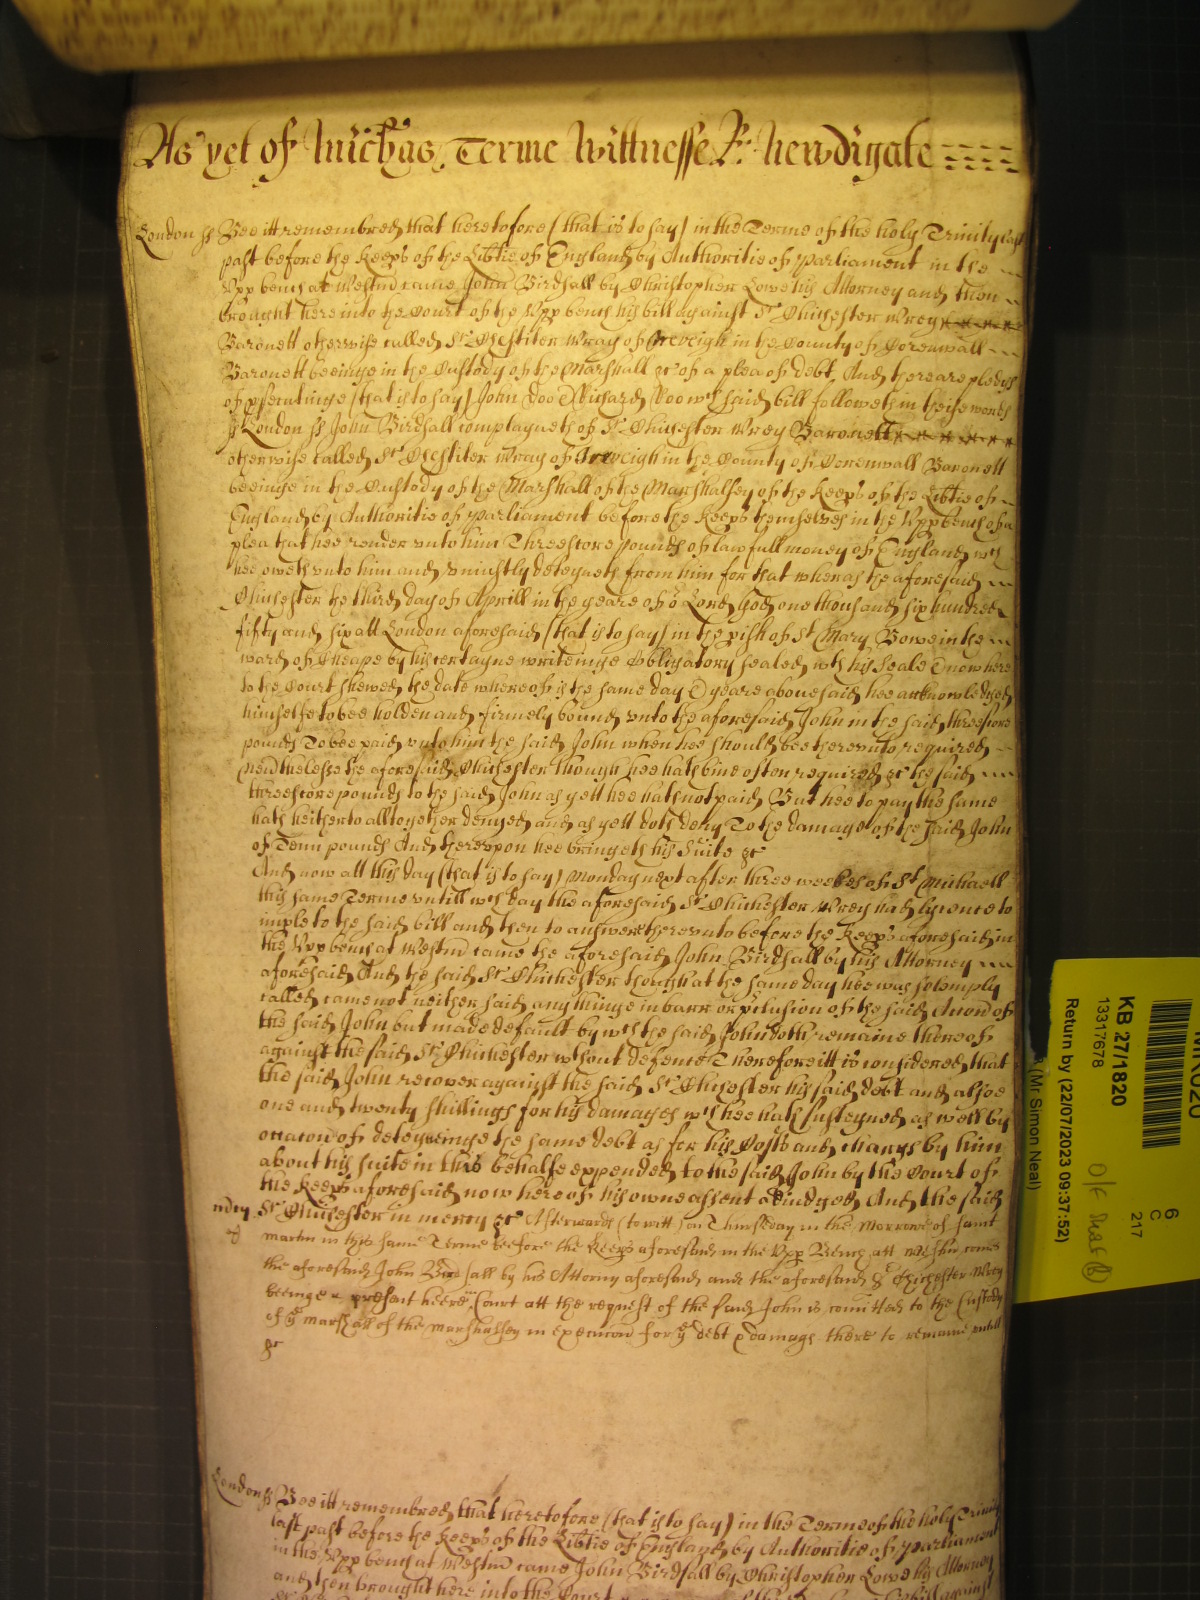 As yet of Michas Terme Wittnesse R: Newdigate
London ss Bee itt remembred that heretofore (that is to say) in the Terme of the holy Trinity last
past before the Keeps of the Libtie of England by Authoritie of Parliament in the
Vpp bench at Westm came John Birdsall by Christopher Lowe his Attorney and then
brought here into the Court of the Vpp bench his bill against Sr Chichester Wrey
Baronett otherwise called Sr Chestiter Wray of Treveigh in the County of Corenwall
Baronett beeinge in the Custody of the Marshall &c of a plea of debt And there are pledgs
of psecutinge (that is to say) John Doo & Richard Roo wch said bill followeth in theise words
ss London ss John Birdsall complayneth of Sr Chichester Wrey Baronett
otherwise called Sr Chestiter Wray of Treveigh in the County of Corenwall Baronett
beeinge in the Custody of the Marshall of the Marshalsey of the Keeps of the Libtie of
England by Authoritie of Parliament before the Keeps themselves in the Vpp bench of a
plea that hee render vnto him Threescore pounds of lawfull money of England wch
hee oweth vnto him and vniustly deteyneth from him for that wheras the aforesaid
Chichester the third day of Aprill in the yeare of or Lord God one thousand six hundred
fifty and six att London aforesaid (that is to say) in the pish of St Mary Bowe in the
ward of Cheape by his certayne writeinge Obligatory sealed wth his Seale & now here
to the Court shewed the date whereof is the same day & yeare abovesaid hee acknowledged
himselfe to bee holden and firmely bound vnto the aforesaid John in the said threescore
pounds To bee paid vnto him the said John when hee should bee therevnto required
Neverthelesse the aforesaid Chichester though hee hath bine often required &c the said
threescore pounds to the said John as yett hee hath not paid But hee to pay the same
hath heitherto alltogether denyed and as yett doth deny To the damage of the said John
of Tenn pounds And therevpon hee bringeth his Suite &c
And now att this day (that is to say) Monday next after three weekes of St Michaell
this same Terme vntill wch day the aforesaid Sr Chichester Wrey had lycence to
imple to the said bill and then to answere therevnto before the Keeps aforesaid in
the Vpp bench at Westm came the aforesaid John Birdsall by his Attorney
aforesaid And the said Sr Chichester though at the same day hee was solemply
called came not neither said any thinge in barr or pclusion of the said Accon of
the said John but made default by wch the said John doth remaine thereof
against the said Sr Chichester wthout defence Therefore itt is considered that
the said John recover against the said Sr Chichester his said debt and alsoe
one and twenty shillings for his damages wch hee hath susteyned as well by
occacon of deteyneinge the same debt as for his Costs and Chargs by him
about his suite in this behalfe expended to the said John by the Court of
the Keeps aforesaid now here of his owne assent adiudged And the said
mcy Sr Chichester in mercy &c Afterwards (to witt) on Thursday in the Morrowe of Saint
Martin in this same Terme before the Keeps aforesaid in the Vpp Bench att Westm come
the aforesaid John Birdsall by his Attorny aforesaid and the aforesaid Sr Chichester Wrey
beeinge present heere in Court att the request of the said John is comitted to the Custody
of ye marshall of the marshalsey in execucon for ye debt & damage there to remaine vntill
&c
London ss Bee itt remembred that heretofore (that is to say) in the Terme of the holy Trinity
last past before the Keeps of the Libtie of England by Authoritie of Parliament
in the Vpp bench at Westm came John Birdsall by Christopher Lowe his Attorney
and then brought here into the Court
KB 27/1820
13317678
Return by (22/07/2023 09:37:52)
(Mr Simon Neal)
6
C
217